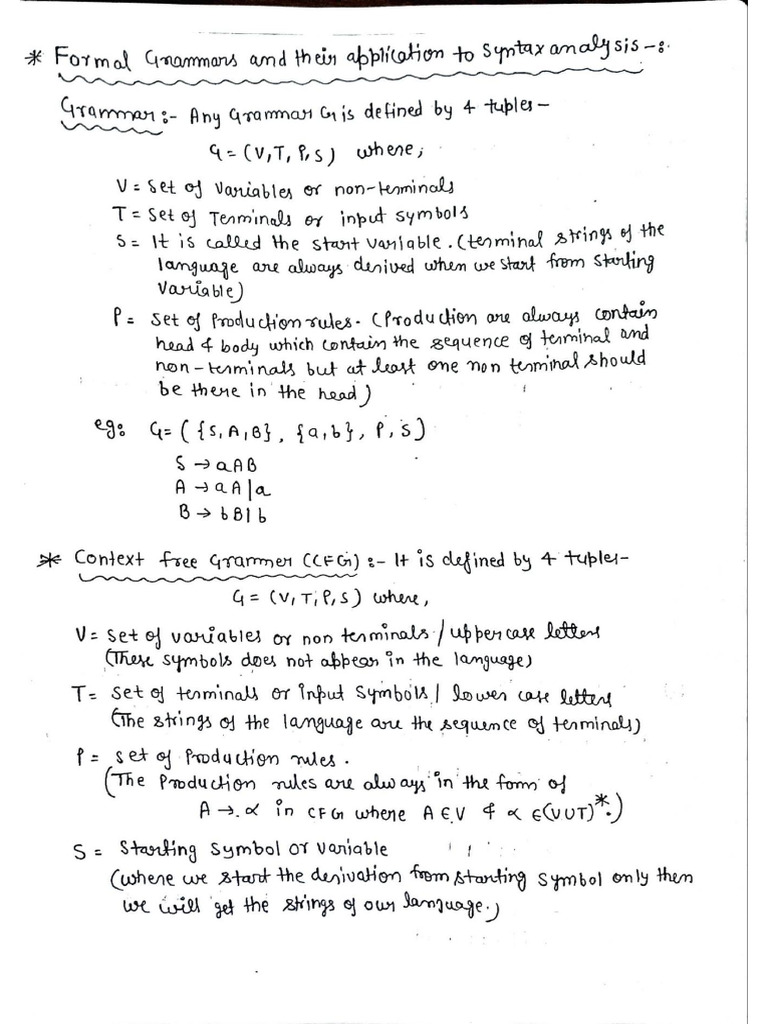 * Formal Grammars and their application to Syntax analysis -:
Grammar :- Any Grammar G is defined by 4 tuples -
G = (V, T, P, S) where,
V = Set of Variables or non-terminals
T = Set of Terminals or input symbols
S = It is called the start variable. (terminal strings of the
language are always derived when we start from starting
variable)
P = Set of Production rules. (Production are always contain
head & body which contain the sequence of terminal and
non-terminals but at least one non terminal should
be there in the head)
eg: G = ( {S, A, B}, {a, b}, P, S )
S → aAB
A → aA|a
B → bB|b
* Context free Grammer (CFG) :- It is defined by 4 tuples -
G = (V, T, P, S) where,
V = Set of variables or non terminals / uppercase letters
(These symbols does not appear in the language)
T = Set of terminals or Input Symbols / lower case letters
(The strings of the language are the sequence of terminals)
P = Set of Production rules.
(The Production rules are always in the form of
A → α in CFG where A ∈ V & α ∈ (V∪T)*.)
S = Starting Symbol or variable
(where we start the derivation from starting symbol only then
we will get the strings of our language.)